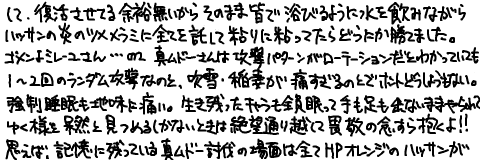 して、復活させてる余裕無いからそのまま皆で浴びるように水を飲みながら
ハッサンの炎のツメメラミに全てを託して粘りに粘ってたらどうにか勝ました。
ゴメンよミレーユさん…om 真ムドーさんは攻撃パターンがローテーションだとわかっていても
1～2回のランダム攻撃なのと、吹雪・稲妻が痛すぎるのとでホントどうしようもない。
強制睡眠も地味に痛い。生き残ったキャラも全員眠って手も足も出ないままやられて
ゆく様を呆然と見つめるしかないときは絶望通り越して畏敬の念すら抱くよ!!
思えば、記憶に残っている真ムドー討伐の場面は全てHPオレンジのハッサンが